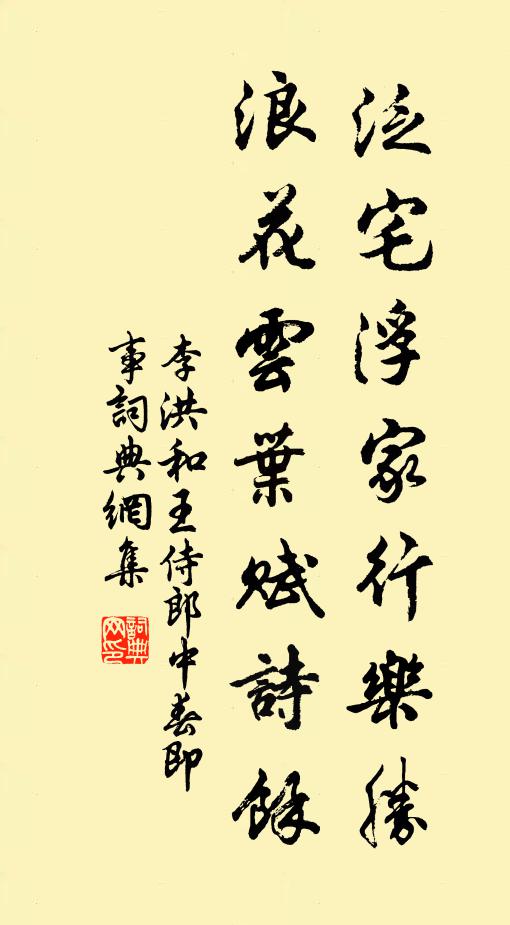 泛宅浮家行樂勝
浪花雲葉賦詩餘
李洪和王侍郎中春即
事詞典網集
詞典網印